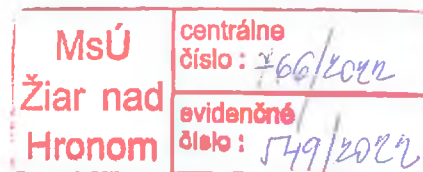 MsÚ
Žiar nad
Hronom
centrálne
číslo : 766/2022
evidenčné
číslo : 549/2022